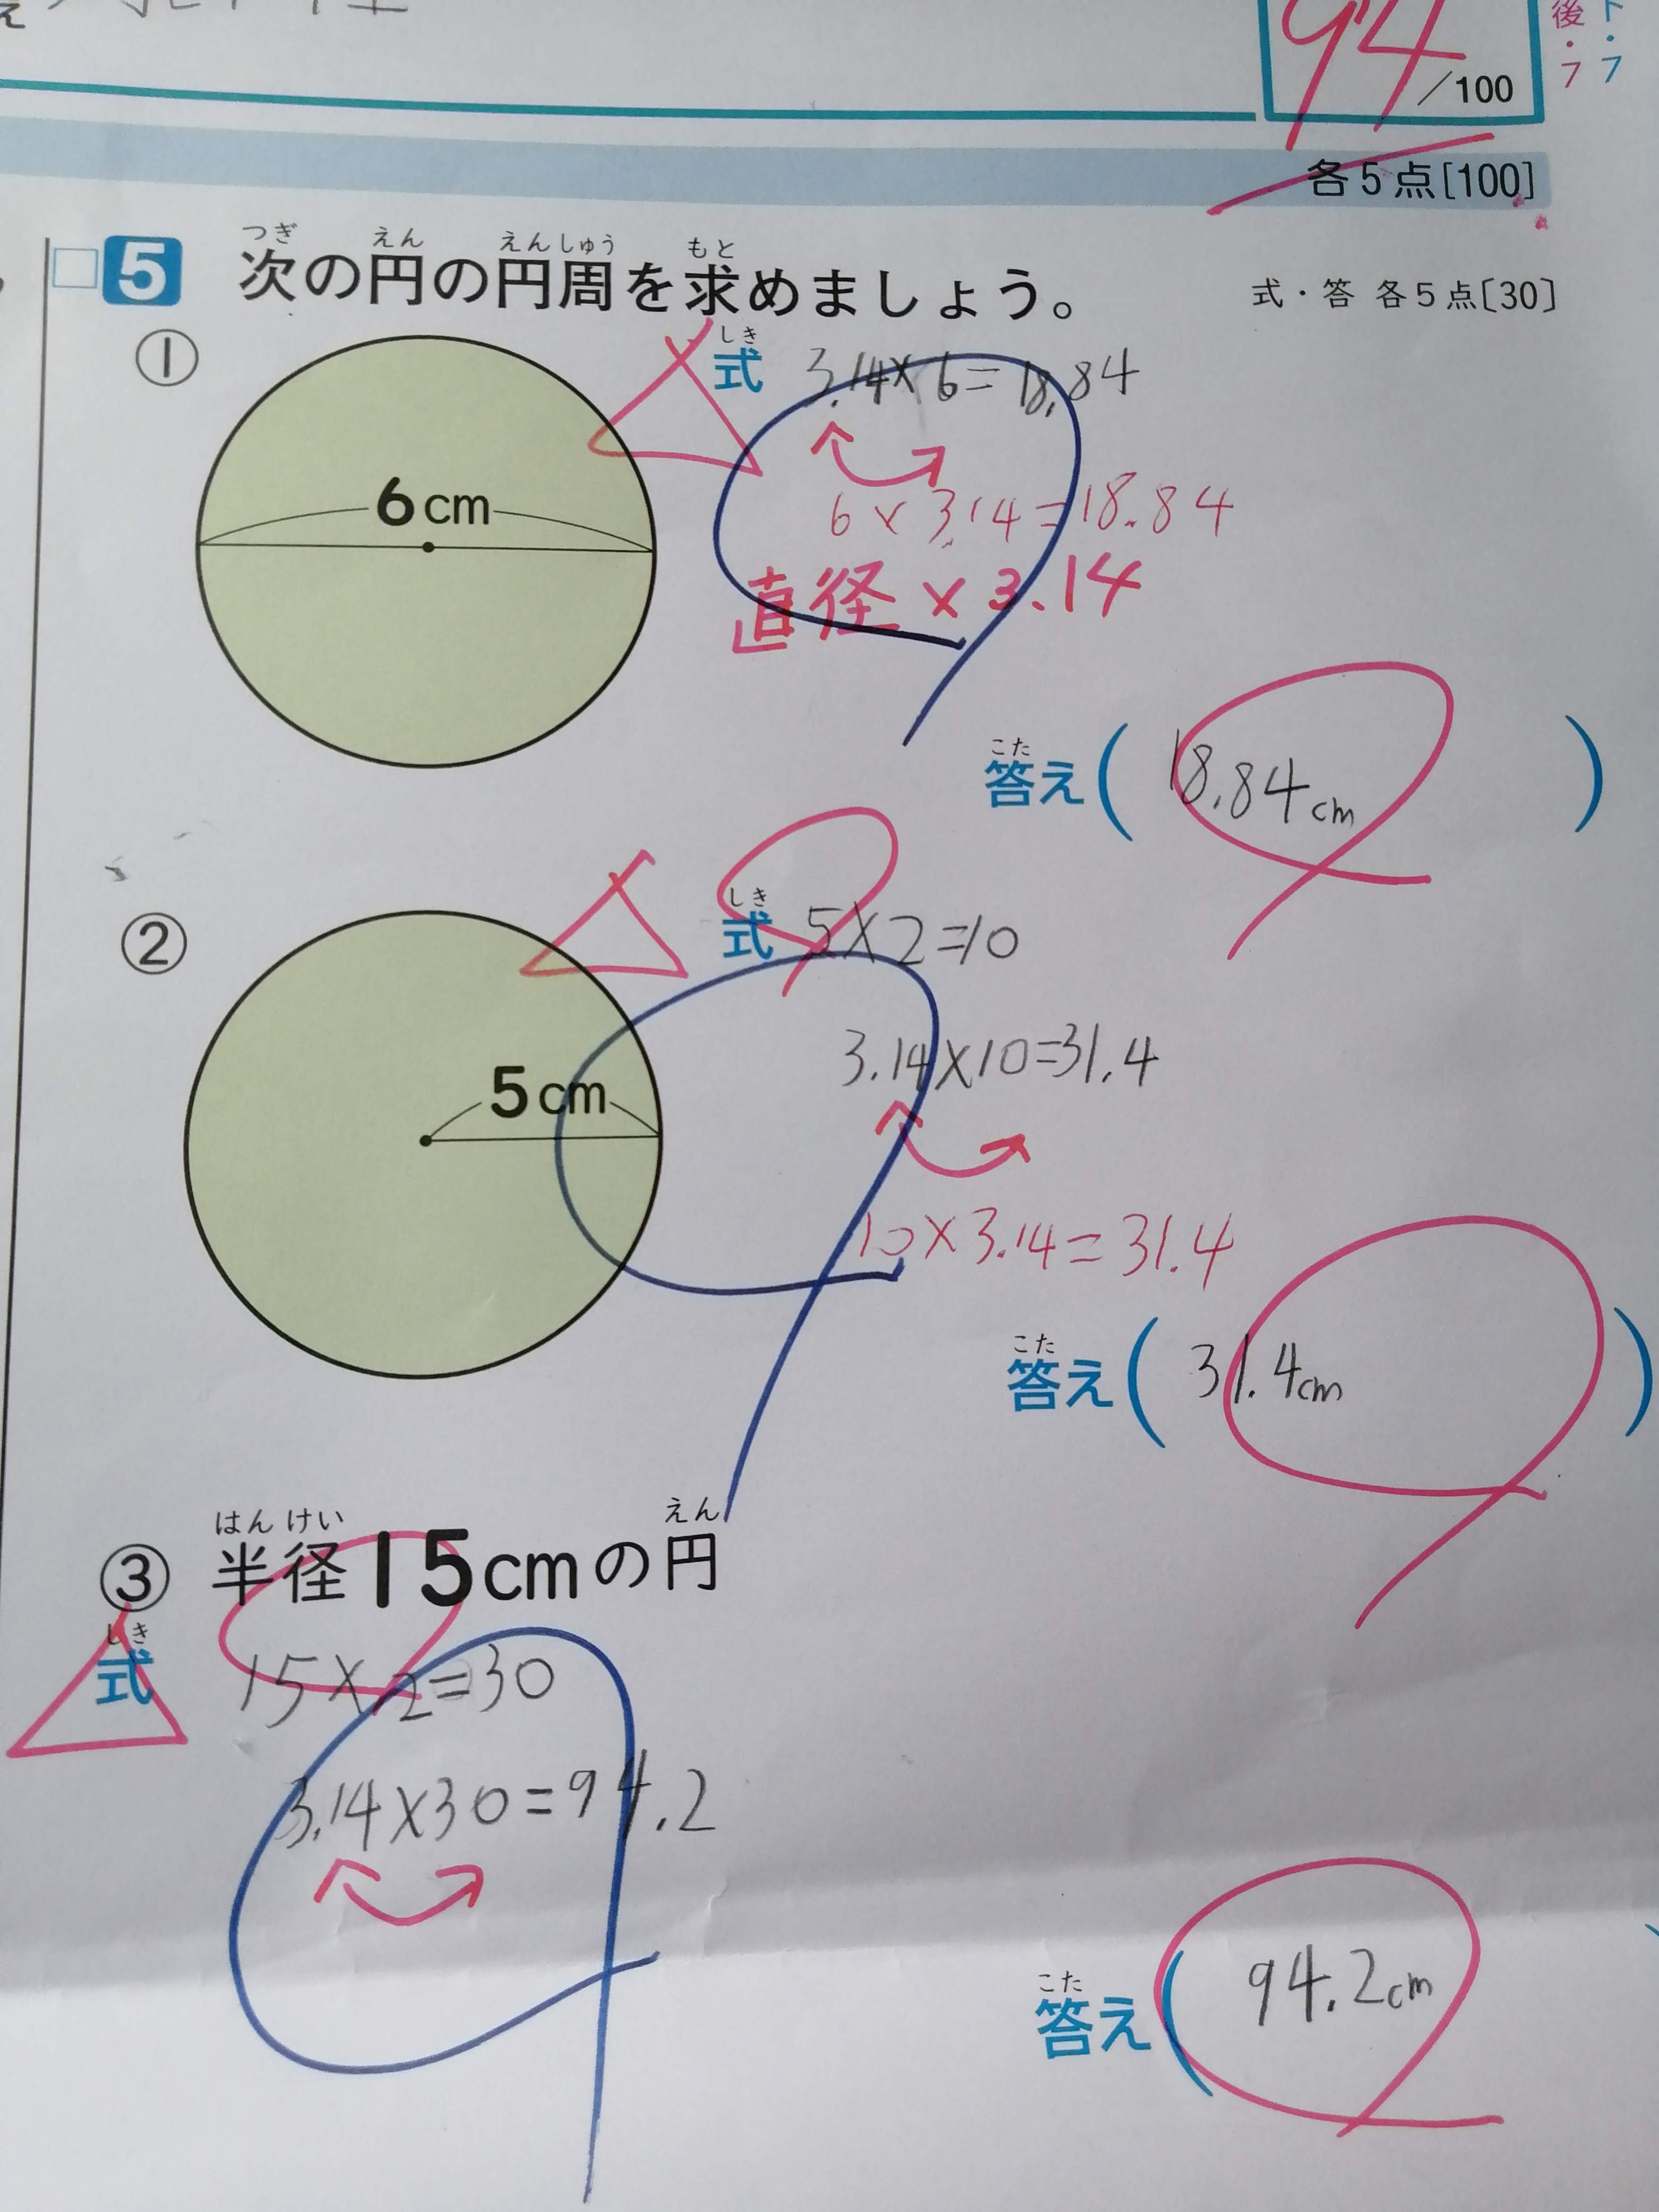 94
/100
後・7
ト・7
各5点[100]
5 次の円の円周を求めましょう。
つぎ えん えんしゅう もと
式・答 各5点[30]
①
6cm
しき
式 3.14×6=18.84
6×3.14=18.84
直径×3.14
こた
答え( 18.84cm )
②
5cm
しき
式 5×2=10
3.14×10=31.4
10×3.14=31.4
こた
答え( 31.4cm )
はんけい えん
③ 半径15cmの円
しき
式 15×2=30
3.14×30=94.2
こた
答え( 94.2cm